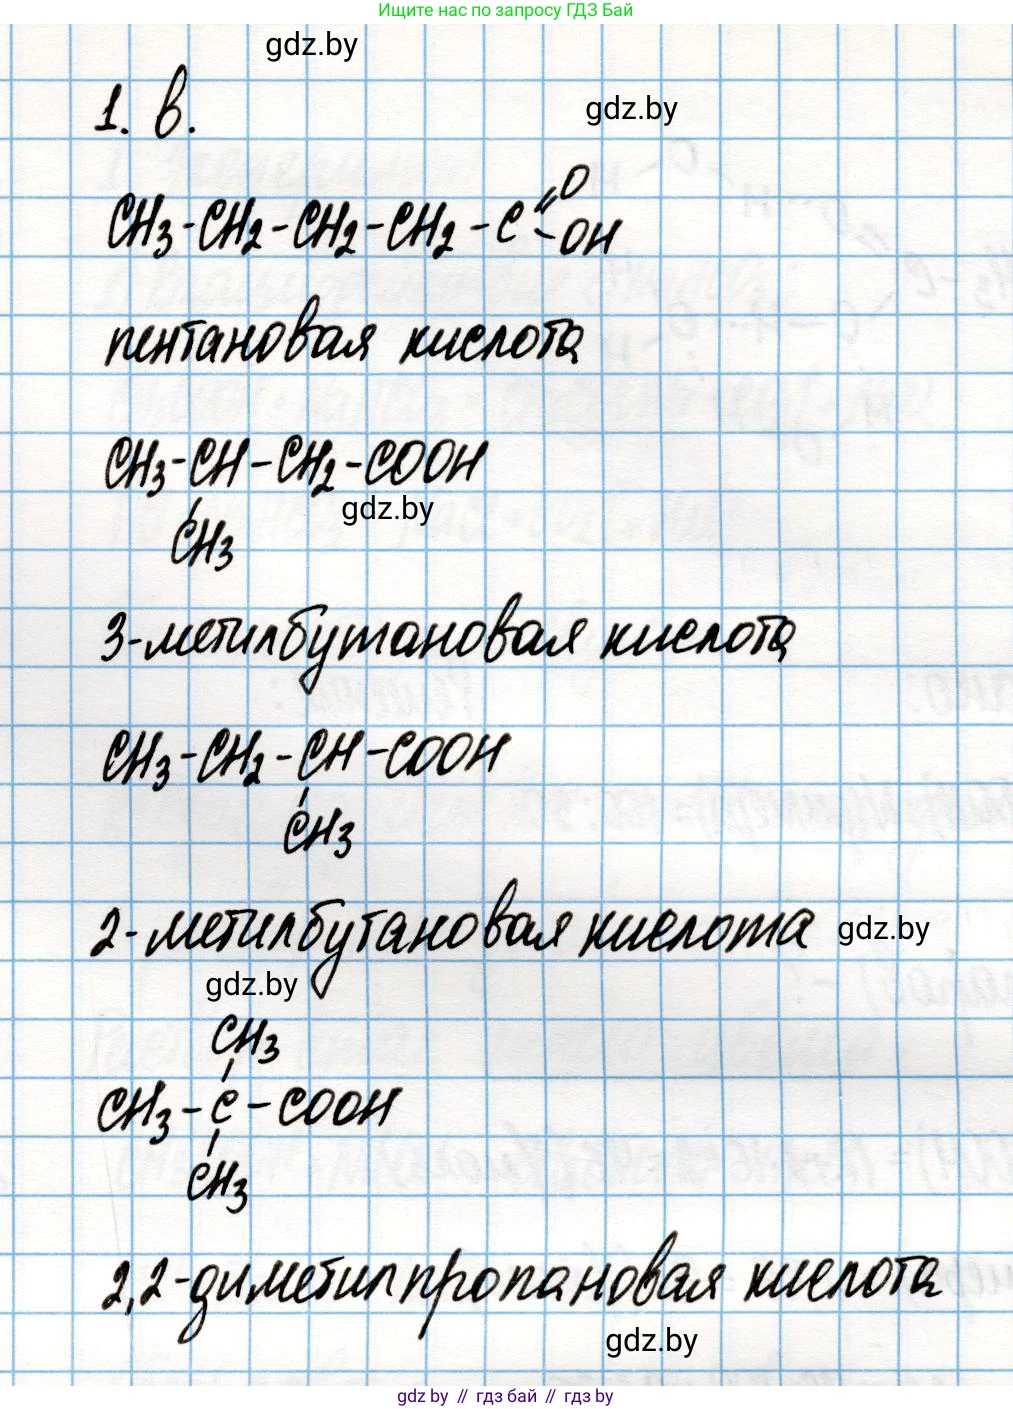 Ищите нас по запросу ГДЗ Бай
gdz.by
1. в.
gdz.by
CH3-CH2-CH2-CH2-C=O
-OH
пентановая кислота
CH3-CH-CH2-COOH
gdz.by
CH3
3-метилбутановая кислота
CH3-CH2-CH-COOH
CH3
2-метилбутановая кислота
gdz.by
gdz.by
CH3
CH3-C-COOH
CH3
2,2-диметилпропановая кислота
gdz.by
gdz.by // гдз бай // гдз by